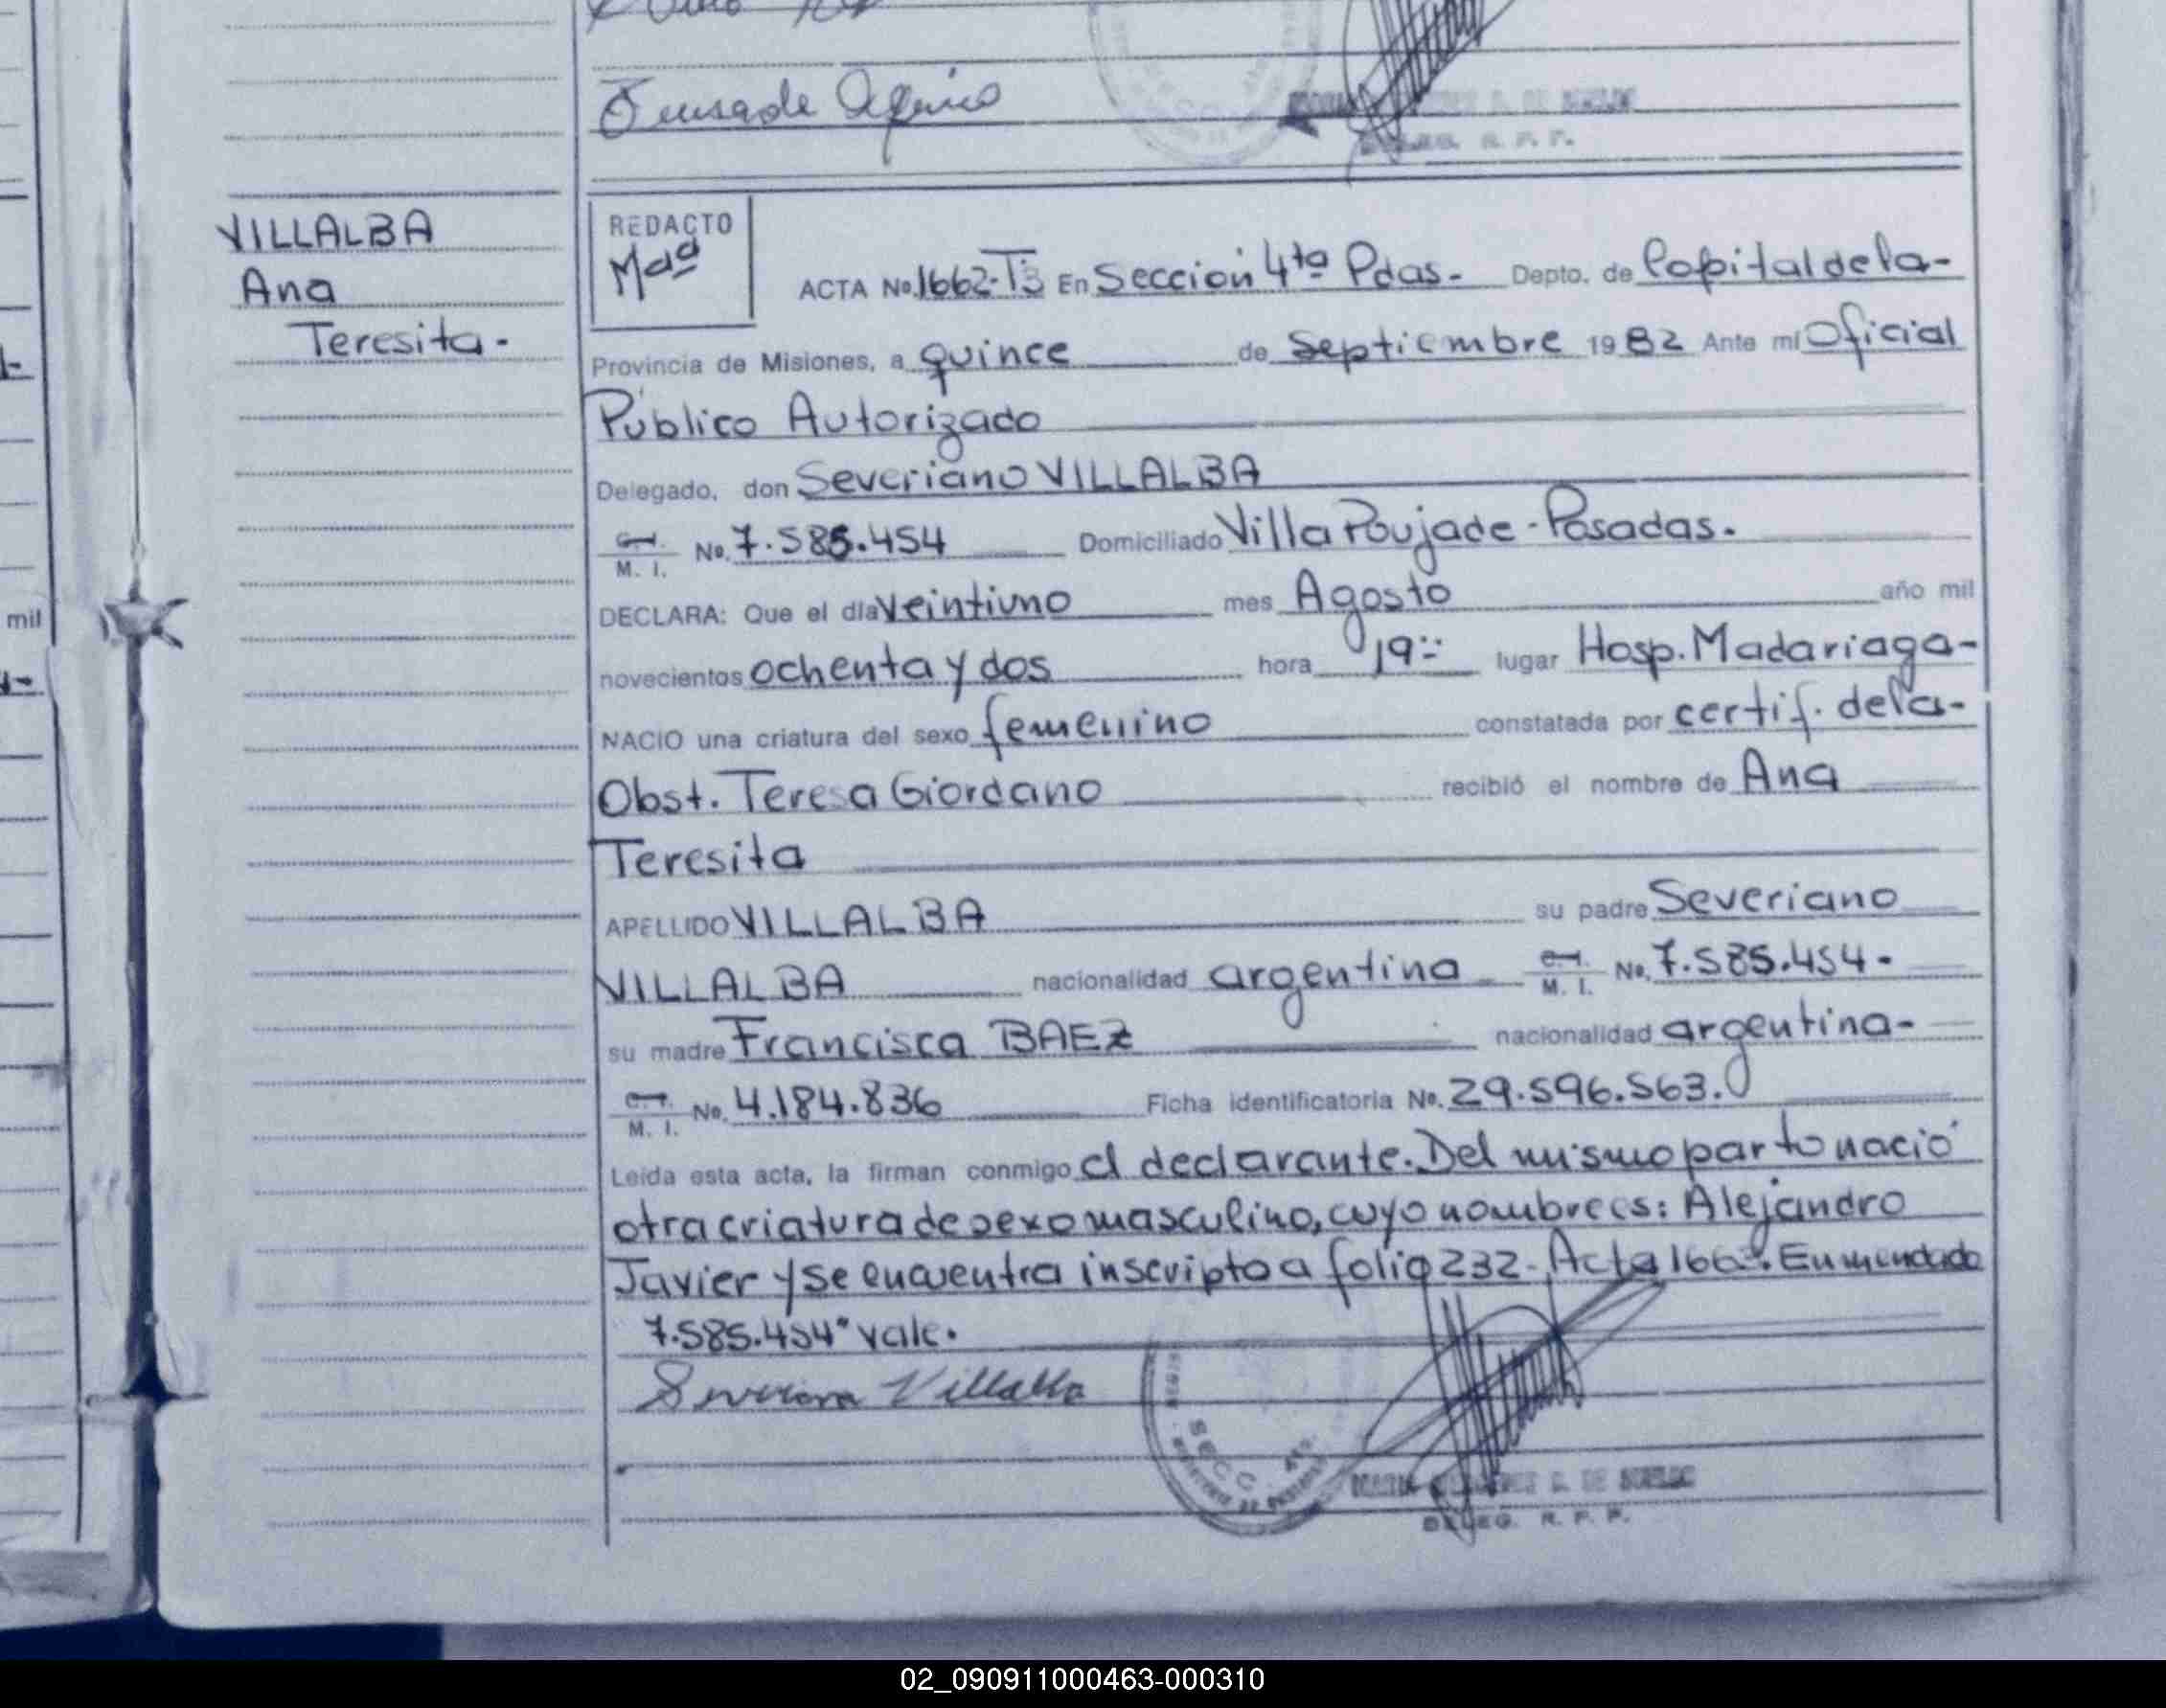 mil
VILLALBA
Ana
Teresita.
REDACTO
Mda
ACTA No. 1662-T3 En Sección 4ta Pdas.- Depto. de Capital de la-
Provincia de Misiones, a quince de Septiembre 1982 Ante mí Oficial
Público Autorizado
Delegado, don Severiano VILLALBA
C.I. M. I. No. 7.585.454 Domiciliado Villa Poujade - Posadas.
DECLARA: Que el día veintiuno mes Agosto año mil
novecientos ochenta y dos hora 19:: lugar Hosp. Madariaga-
NACIO una criatura del sexo femenino constatada por certif. de la-
Obst. Teresa Giordano recibió el nombre de Ana
Teresita
APELLIDO VILLALBA su padre Severiano
VILLALBA nacionalidad argentina C.I. M. I. No. 7.585.454.
su madre Francisca BAEZ nacionalidad argentina-
C.I. M. I. No. 4.184.836 Ficha identificatoria No. 29.596.563.
Leída esta acta, la firman conmigo el declarante. Del mismo parto nació
otra criatura de sexo masculino, cuyo nombre es: Alejandro
Javier y se encuentra inscripto a folio 232- Acta Enmendado
7.585.454" vale.
Villalba
SECC. 4ta.
DE
DELEG. R. P. P.
02_090911000463-000310